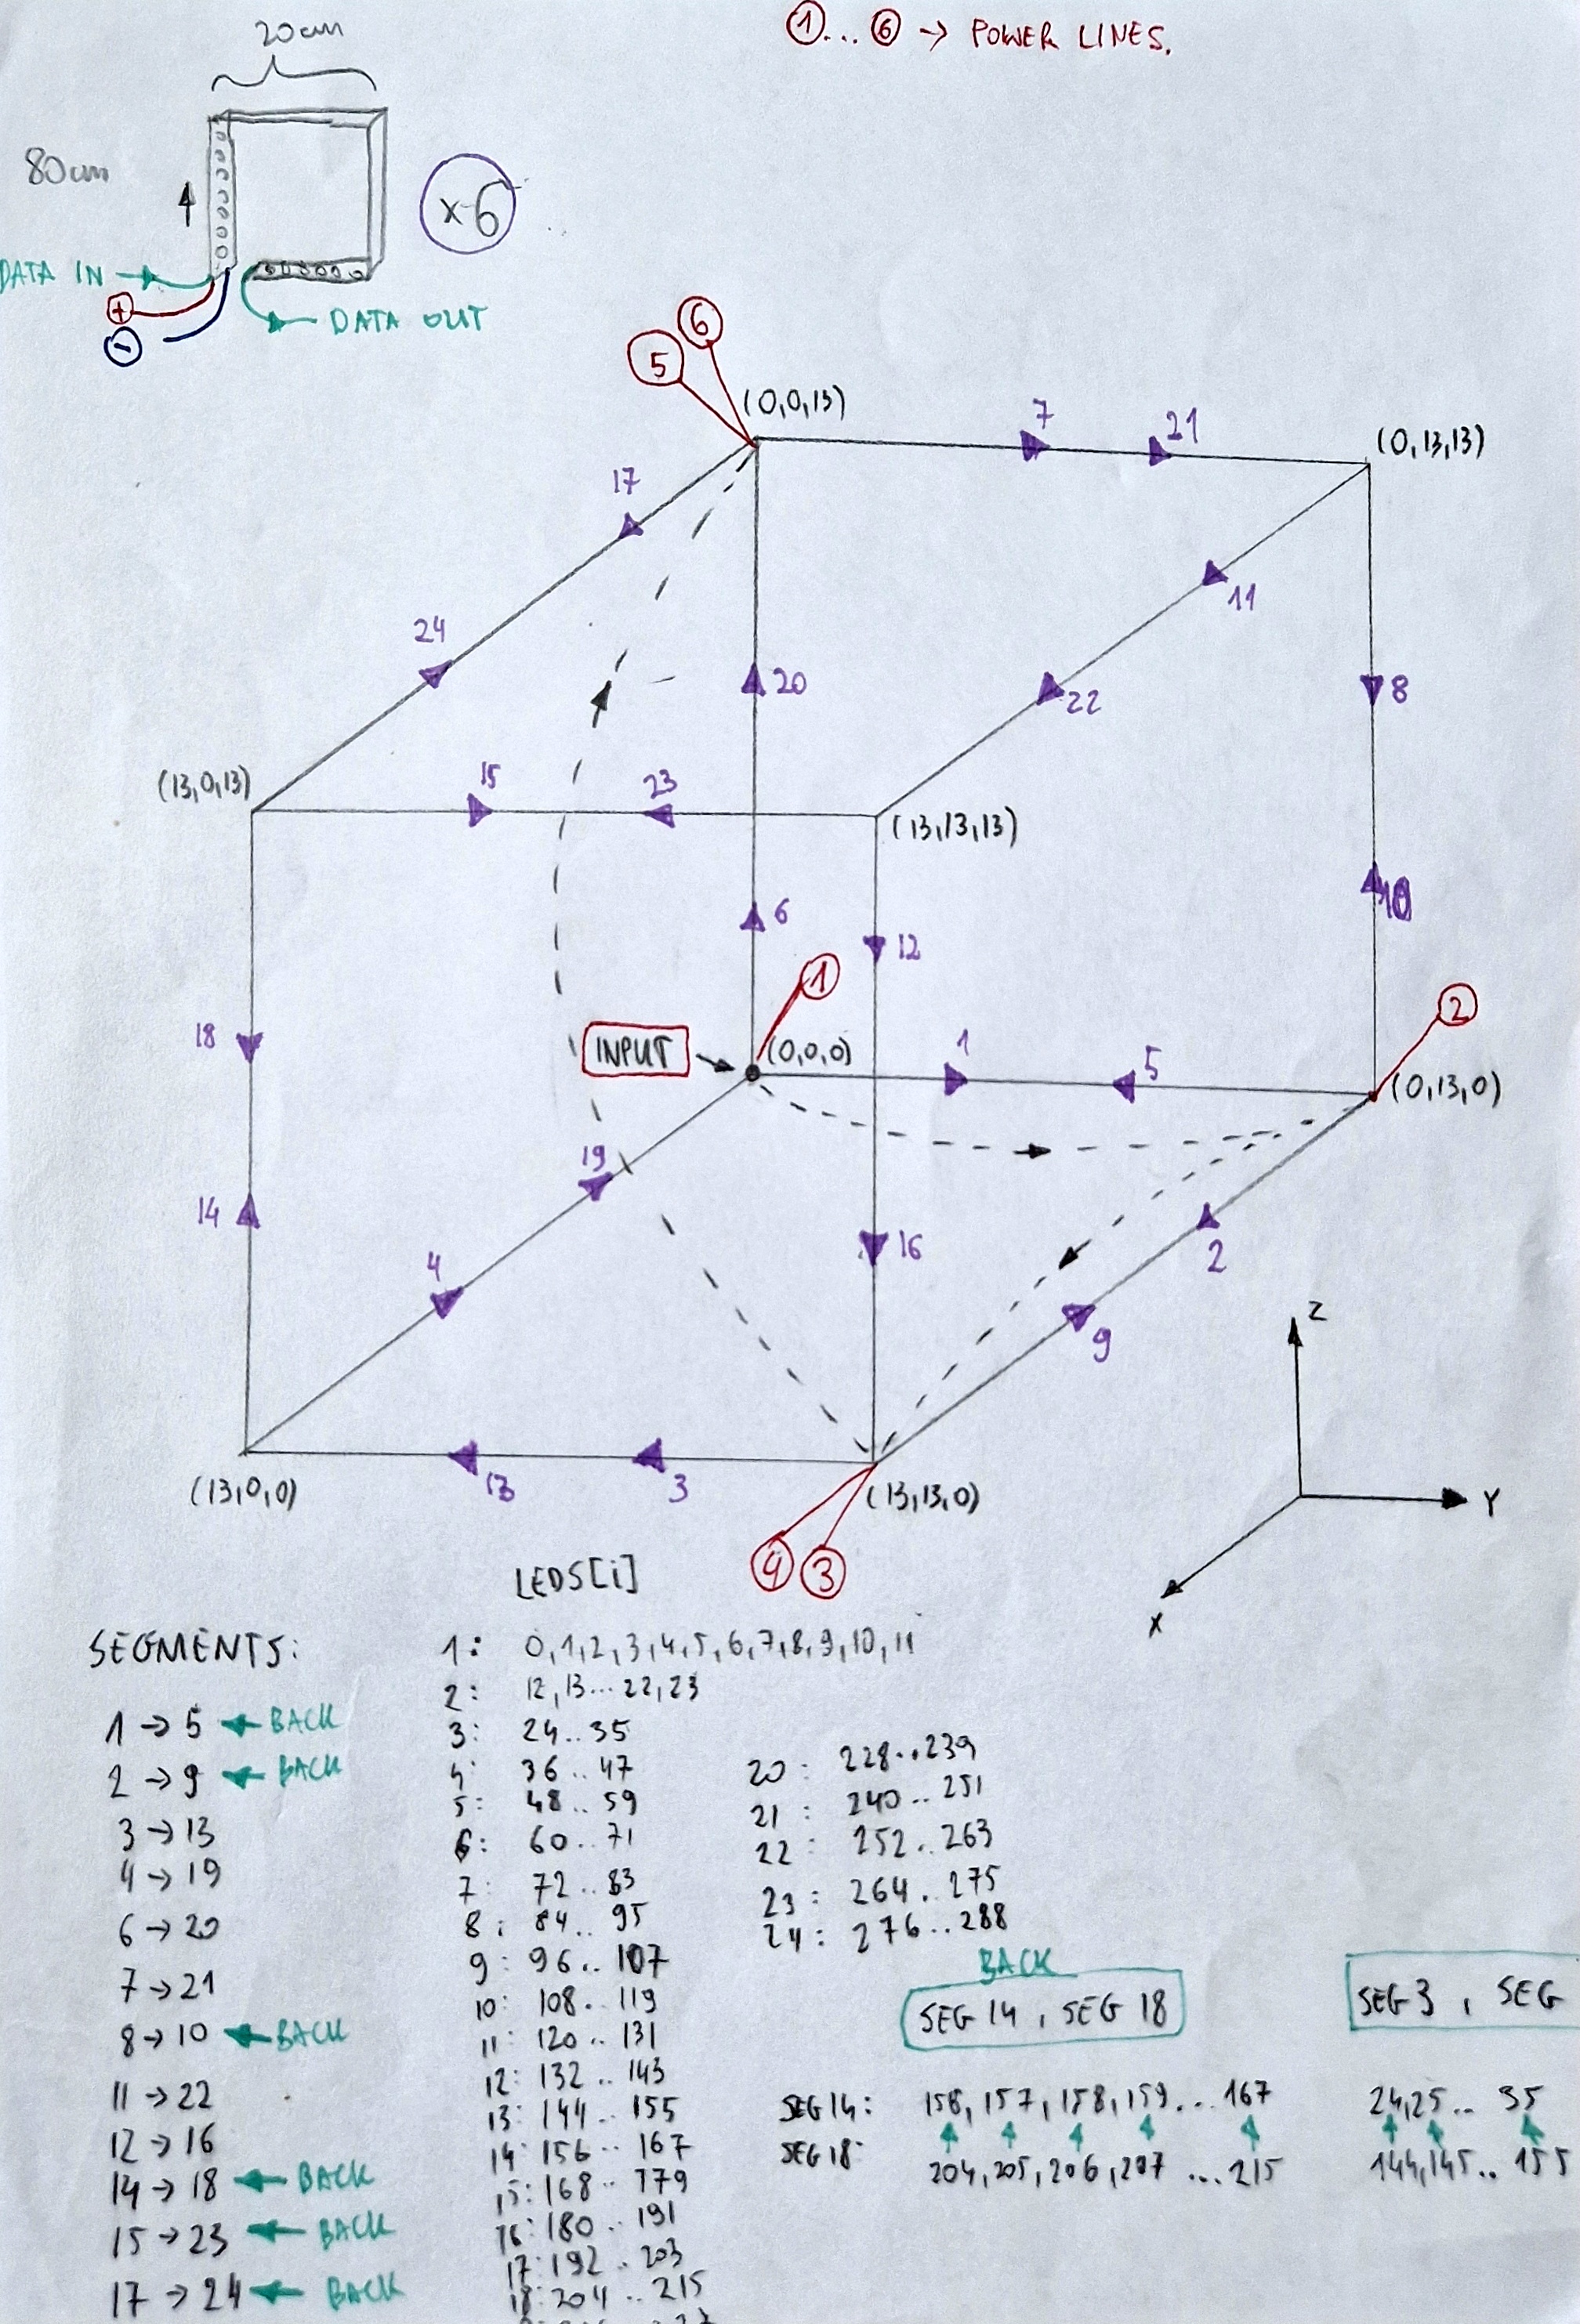 ①...⑥ → POWER LINES.
20cm
80cm
x6
DATA IN
+
-
DATA OUT
⑥
⑤
(0,0,13)
7
21
(0,13,13)
17
11
24
20
22
8
(13,0,13)
15
23
(13,13,13)
10
6
12
①
②
18
INPUT
(0,0,0)
1
5
(0,13,0)
19
14
16
2
4
9
Z
(13,0,0)
13
3
(13,13,0)
Y
④
③
X
LEDS[i]
SEGMENTS:
1 → 5 ← BACK
2 → 9 ← BACK
3 → 13
4 → 19
6 → 20
7 → 21
8 → 10 ← BACK
11 → 22
12 → 16
14 → 18 ← BACK
15 → 23 ← BACK
17 → 24 ← BACK
1: 0,1,2,3,4,5,6,7,8,9,10,11
2: 12,13...22,23
3: 24..35
4: 36..47
5: 48..59
6: 60..71
7: 72..83
8: 84..95
9: 96..107
10: 108..119
11: 120..131
12: 132..143
13: 144..155
14: 156..167
15: 168..179
16: 180..191
17: 192..203
18: 204..215
20: 228..239
21: 240..251
22: 252..263
23: 264..275
24: 276..288
BACK
SEG 14, SEG 18
SEG 14: 156, 157, 158, 159... 167
SEG 18: 204, 205, 206, 207 ...215
SEG 3, SEG
24,25.. 35
144,145.. 155